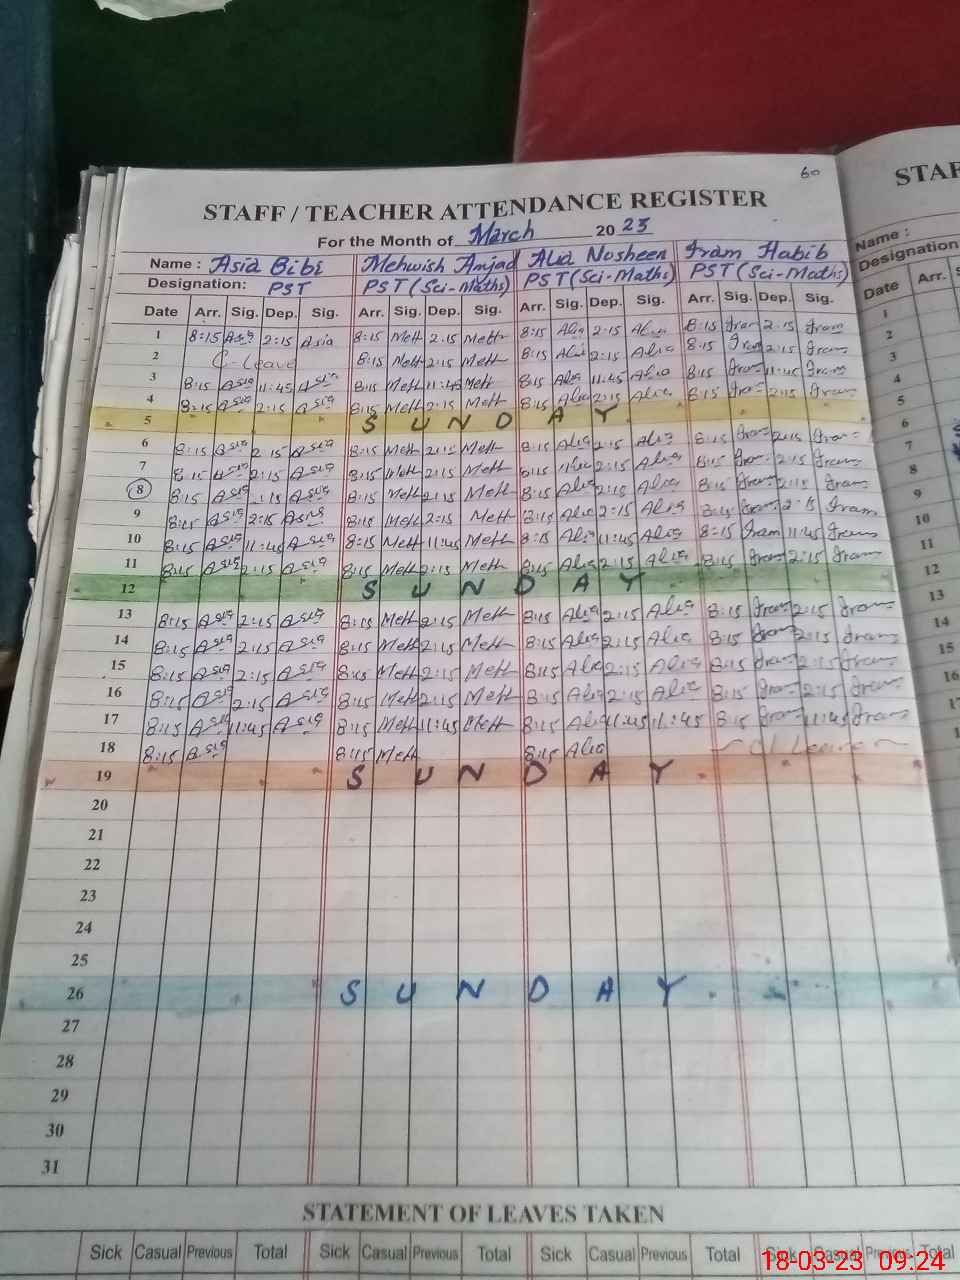 60
STAFF / TEACHER ATTENDANCE REGISTER
STAF
For the Month of March 2023
Name : Asia Bibi Mehwish Amjad Alia Nosheen Iram Habib
Name :
Designation: PST PST (Sci-Maths) PST (Sci-Maths) PST (Sci-Maths)
Designation
Date Arr. Sig. Dep. Sig. Arr. Sig. Dep. Sig. Arr. Sig. Dep. Sig. Arr. Sig. Dep. Sig.
Date Arr.
1 8:15 Asia 2:15 Asia 8:15 Meh 2:15 Meh 8:15 Alia 2:15 Alia 8:15 Iram 2:15 Iram
2 C-Leave 8:15 Meh 2:15 Meh 8:15 Alia 2:15 Alia 8:15 Iram 2:15 Iram
3 8:15 Asia 11:45 Asia 8:15 Meh 11:45 Meh 8:15 Alia 11:45 Alia 8:15 Iram 11:45 Iram
4 8:15 Asia 2:15 Asia 8:15 Meh 2:15 Meh 8:15 Alia 2:15 Alia 8:15 Iram 2:15 Iram
5 SUNDAY
6 8:15 Asia 2:15 Asia 8:15 Meh 2:15 Meh 8:15 Alia 2:15 Alia 8:15 Iram 2:15 Iram
7 8:15 Asia 2:15 Asia 8:15 Meh 2:15 Meh 8:15 Alia 2:15 Alia 8:15 Iram 2:15 Iram
8 8:15 Asia :15 Asia 8:15 Meh 2:15 Meh 8:15 Alia 2:15 Alia 8:15 Iram 2:15 Iram
9 8:15 Asia 2:15 Asia 8:15 Meh 2:15 Meh 8:15 Alia 2:15 Alia 8:15 Iram 2:15 Iram
10 8:15 Asia 11:45 Asia 8:15 Meh 11:45 Meh 8:15 Alia 11:45 Alia 8:15 Iram 11:45 Iram
11 8:15 Asia 2:15 Asia 8:15 Meh 2:15 Meh 8:15 Alia 2:15 Alia 8:15 Iram 2:15 Iram
12 SUNDAY
13 8:15 Asia 2:15 Asia 8:15 Meh 2:15 Meh 8:15 Alia 2:15 Alia 8:15 Iram 2:15 Iram
14 8:15 Asia 2:15 Asia 8:15 Meh 2:15 Meh 8:15 Alia 2:15 Alia 8:15 Iram 2:15 Iram
15 8:15 Asia 2:15 Asia 8:15 Meh 2:15 Meh 8:15 Alia 2:15 Alia 8:15 Iram 2:15 Iram
16 8:15 Asia 2:15 Asia 8:15 Meh 2:15 Meh 8:15 Alia 2:15 Alia 8:15 Iram 2:15 Iram
17 8:15 Asia 11:45 Asia 8:15 Meh 11:45 Meh 8:15 Alia 11:45 11:45 8:15 Iram 11:45 Iram
18 8:15 Asia 8:15 Meh 8:15 Alia Leave
19 SUNDAY
20
21
22
23
24
25
26 SUNDAY
27
28
29
30
31
1
2
3
4
5
6
7
8
9
10
11
12
13
14
15
16
STATEMENT OF LEAVES TAKEN
Sick Casual Previous Total Sick Casual Previous Total Sick Casual Previous Total Sick Casual Previous Total
18-03-23 09:24